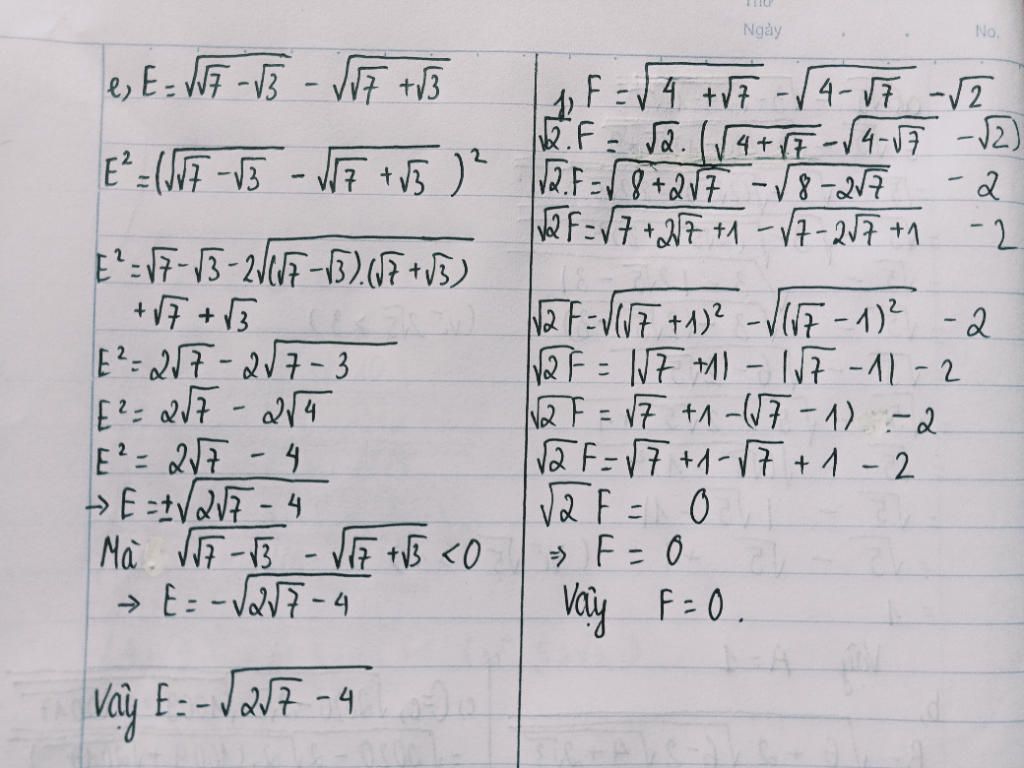 Thứ
Ngày . . No.
e, E = √(√7 - √3) - √(√7 + √3)
E² = (√(√7 - √3) - √(√7 + √3))²
E² = √7 - √3 - 2√((√7 - √3).(√7 + √3))
+ √7 + √3
E² = 2√7 - 2√(7 - 3)
E² = 2√7 - 2√4
E² = 2√7 - 4
→ E = ±√(2√7 - 4)
Mà √(√7 - √3) - √(√7 + √3) < 0
→ E = -√(2√7 - 4)
Vậy E = -√(2√7 - 4)
f, F = √(4 + √7) - √(4 - √7) - √2
√2.F = √2.(√(4 + √7) - √(4 - √7) - √2)
√2.F = √(8 + 2√7) - √(8 - 2√7) - 2
√2F = √(7 + 2√7 + 1) - √(7 - 2√7 + 1) - 2
√2F = √((√7 + 1)²) - √((√7 - 1)²) - 2
√2F = |√7 + 1| - |√7 - 1| - 2
√2F = √7 + 1 - (√7 - 1) - 2
√2F = √7 + 1 - √7 + 1 - 2
√2 F = 0
⇒ F = 0
Vậy F = 0.